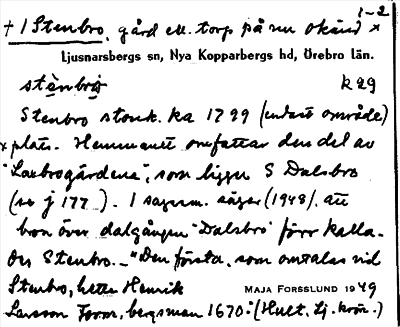 1-2
† 1 Stenbro, gård ell. torp på nu okänd x
Ljusnarsbergs sn, Nya Kopparbergs hd, Örebro län.
stènbrò k 29
Stenbro stomk. ka 1799 (endast område)
x plats. Hemmanet omfattar den del av
"Laxbrogårdena", som ligger S Dalsbro
(se j 177 ). I sagesm. säger (1948), att
bron över dalgången "Dalsbro" förr kalla-
des Stenbro. _ "Den första, som omtalas vid
Stenbro, hette Henrik MAJA FORSSLUND 1949
Larsson Form, bergsman 1670." (Hult. Lj. krön.)